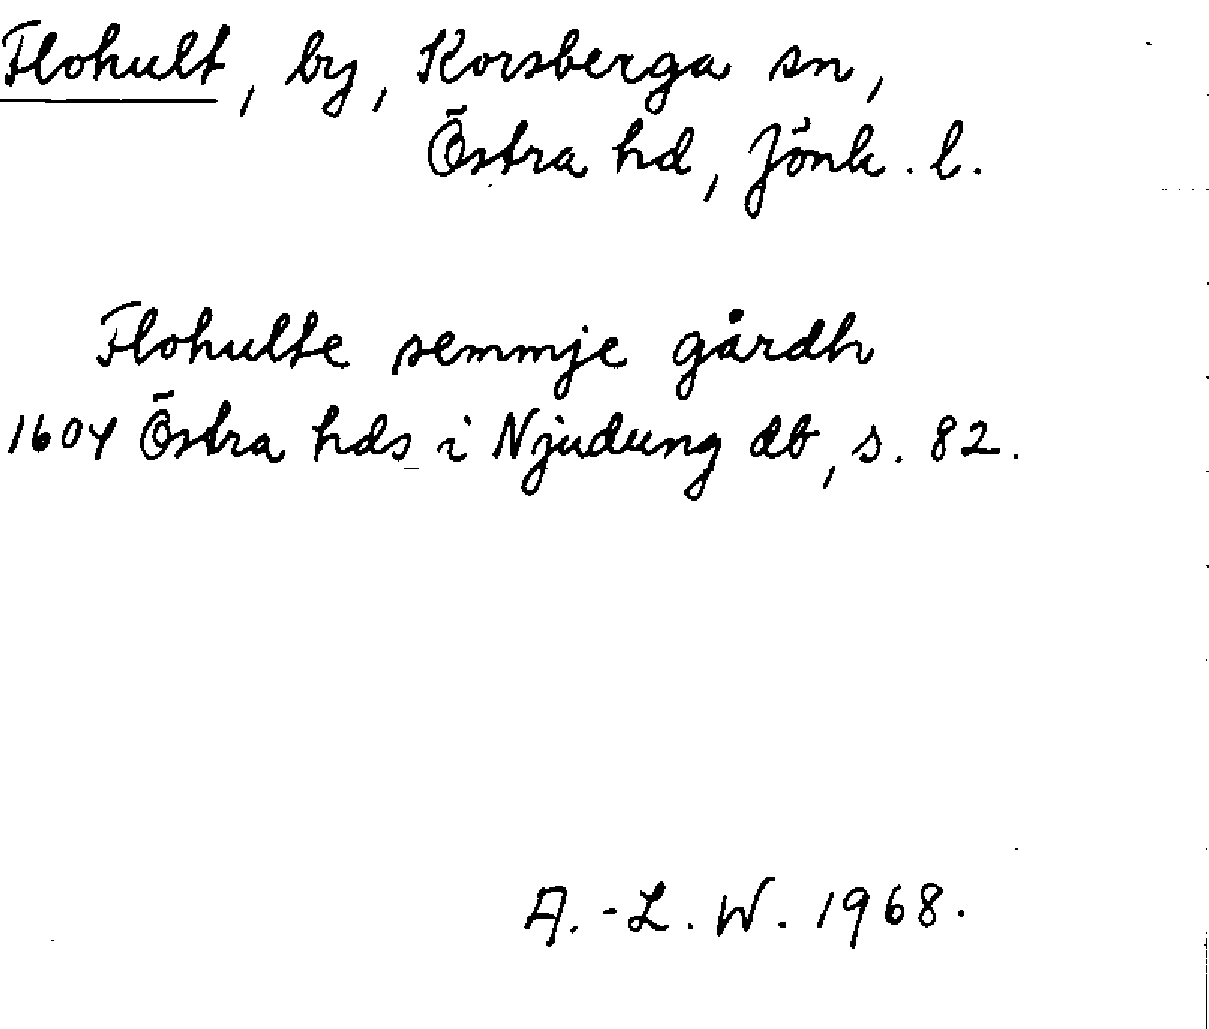 Flohult, by, Korsberga sn,
Östra hd, Jönk. l.
Flohulte semmje gårdh
1604 Östra hds i Njudung db, s. 82.
A.-L. W. 1968.